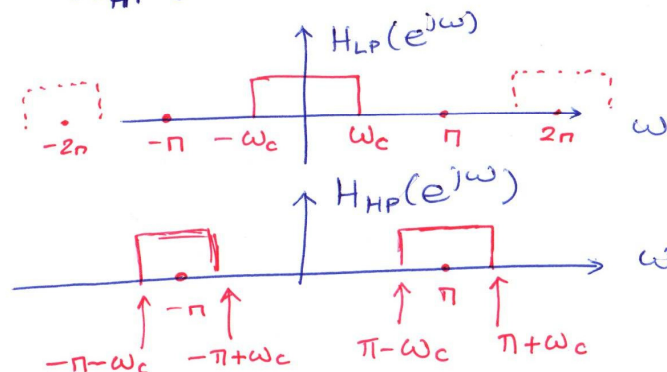 HP
H_LP(e^jω)
-2π -π -ω_c ω_c π 2π ω
H_HP(e^jω)
-π π ω
-π-ω_c -π+ω_c π-ω_c π+ω_c